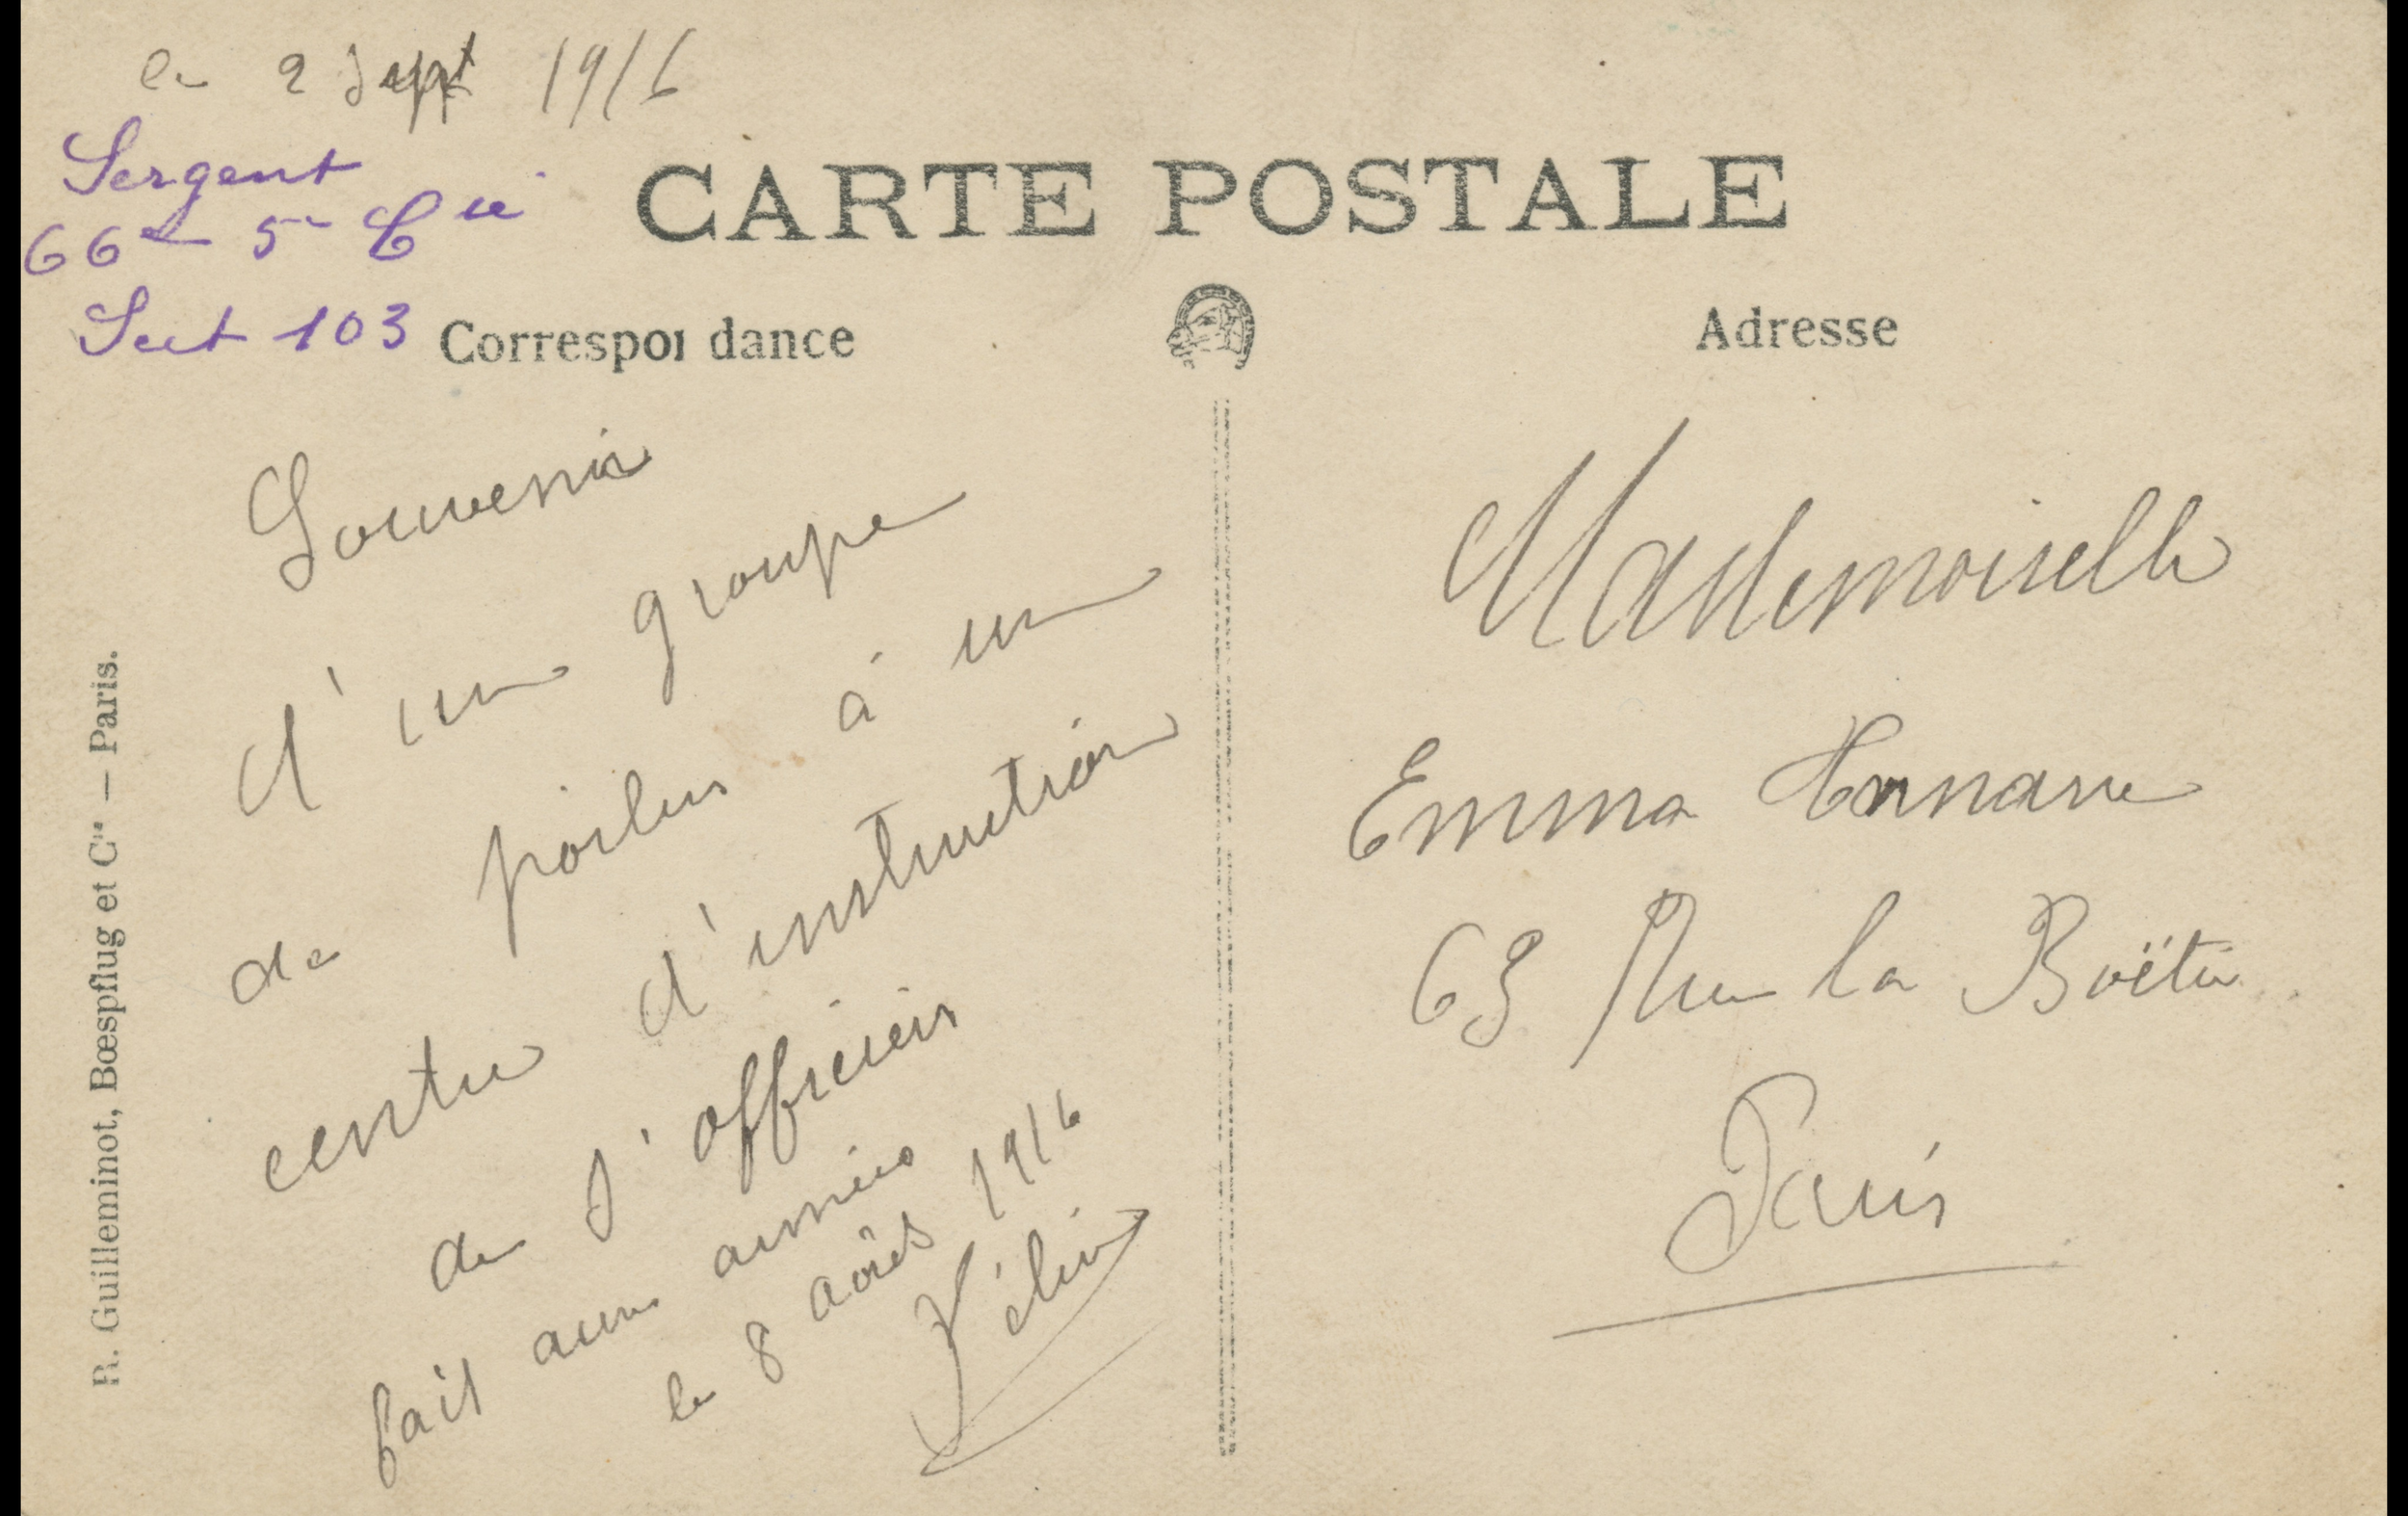 le 2 Sept 1916
Sergent
66e 5e Cie
Sect 103
CARTE POSTALE
Correspondance
Adresse
Souvenir
d'un groupe
de poilus à un
centre d'instruction
de s'officiers
fait aux armées
le 8 août 1916
Félix
Mademoiselle
Emma
63 Rue la Boëtie
Paris
R. Guilleminot, Bœspflug et Cie — Paris.